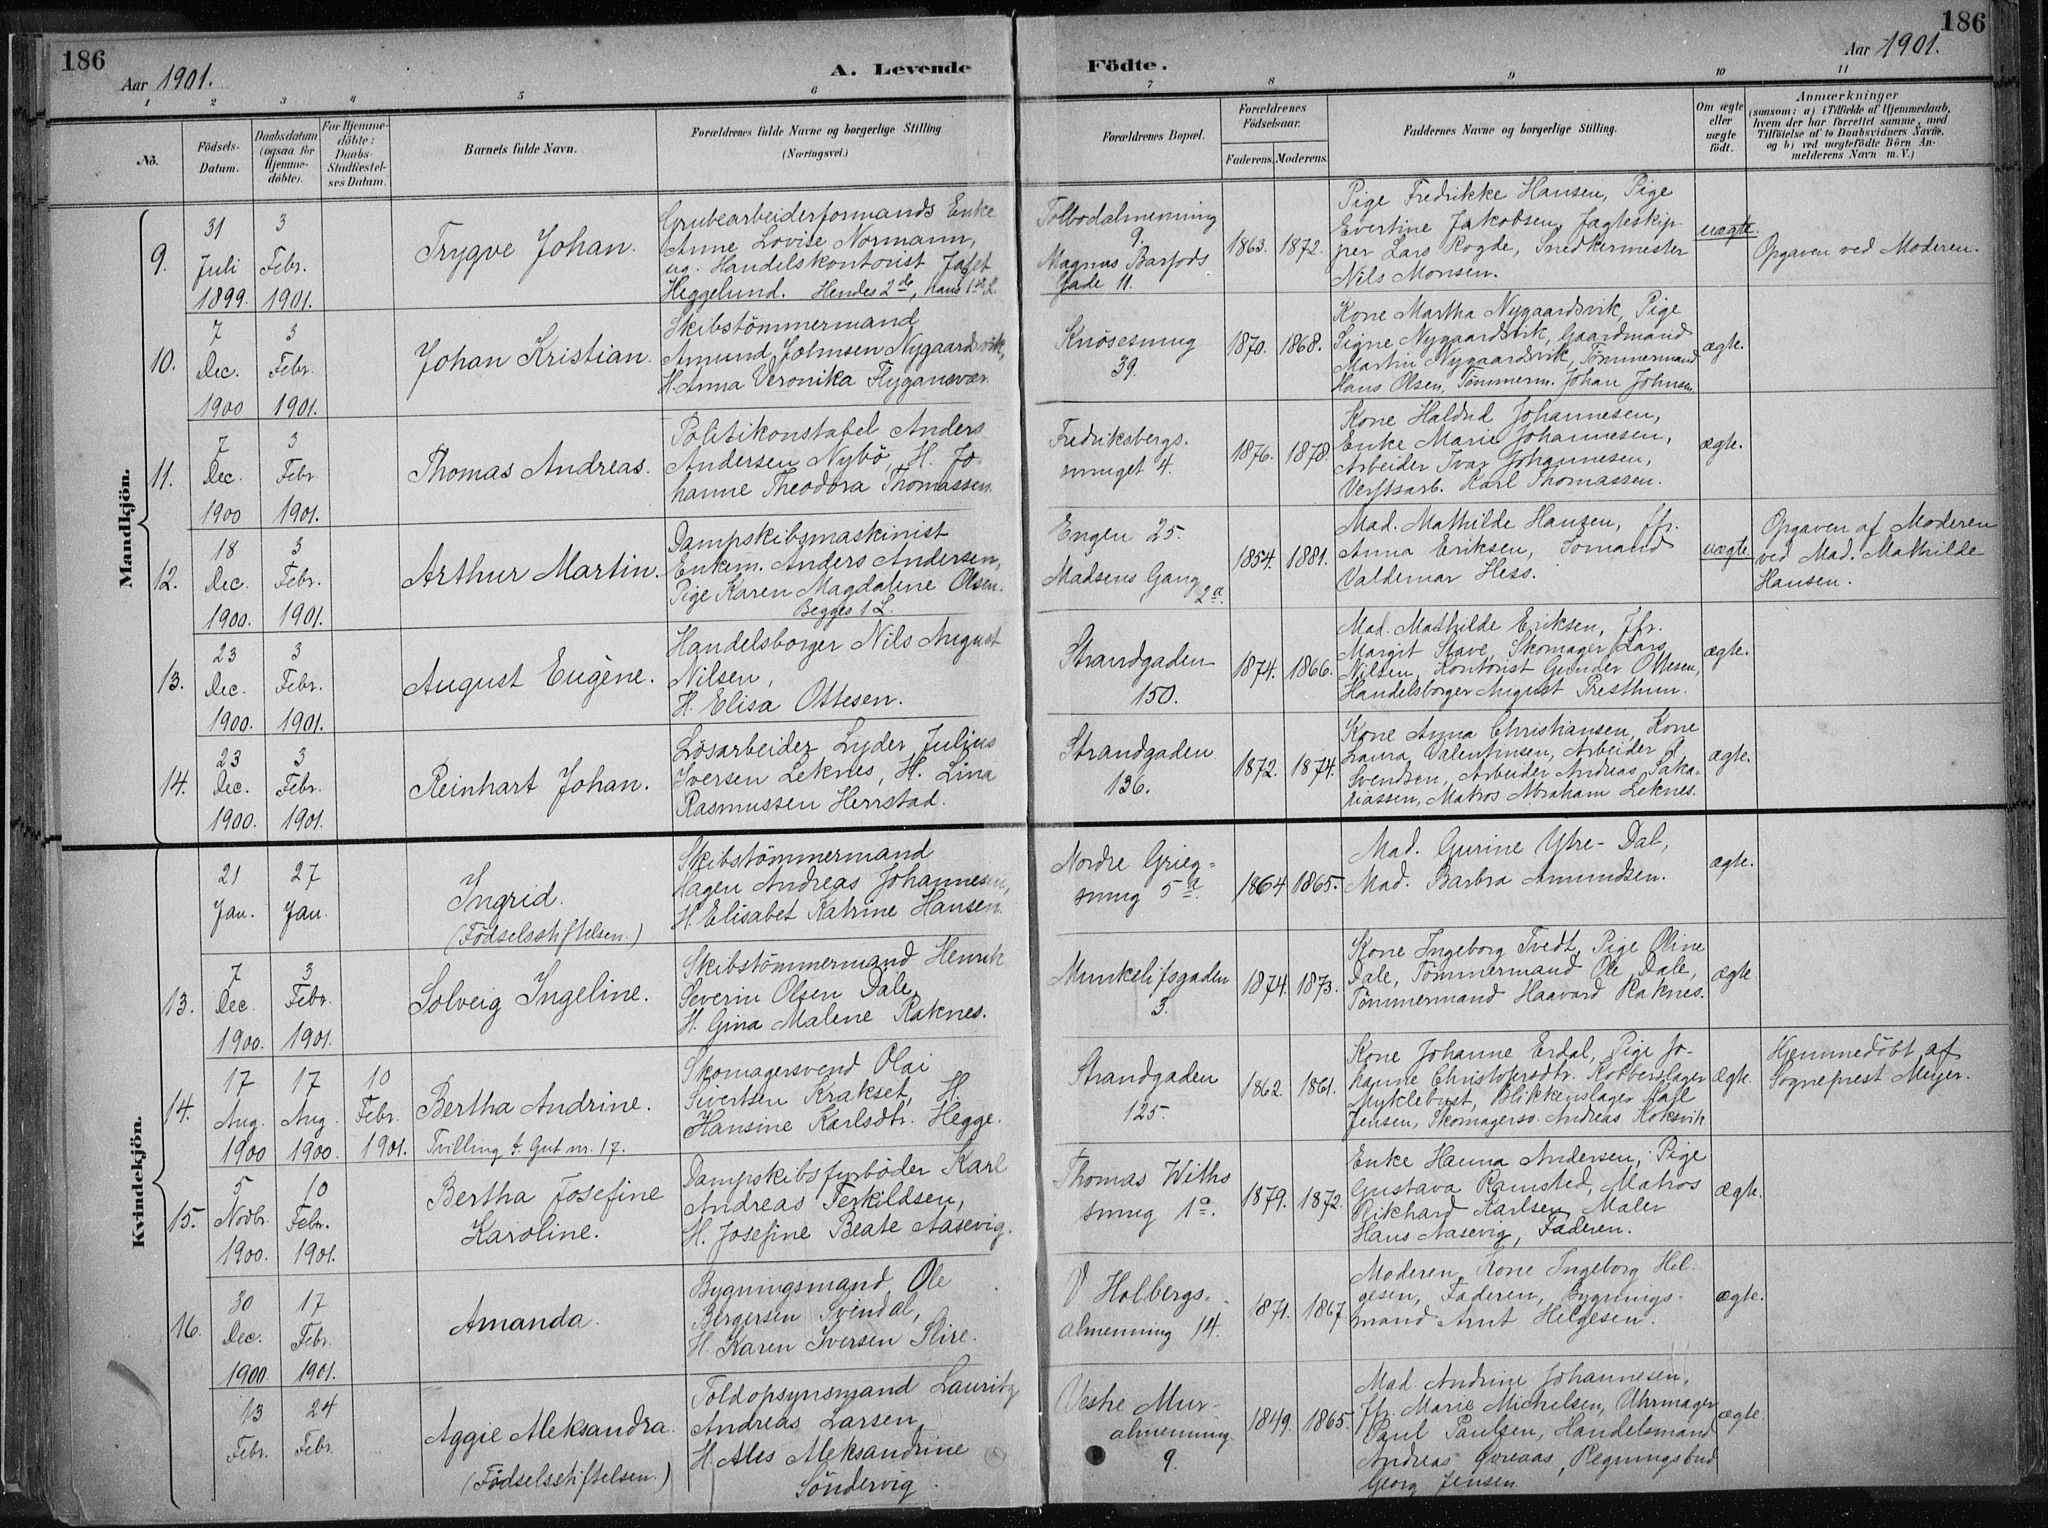 186
Aar 1901.
A. Levende
Födte.
Aar 1901.
186
1 2 3 4 5 6 7 8 9 10 11
No.
Födsels-Datum.
Daabsdatum (ogsaa for Hjemme-döbte).
For Hjemme-döbte: Daabs-Stadfæstel-ses Datum.
Barnets fulde Navn.
Forældrenes fulde Navne og borgerlige Stilling
(Næringsvei.)
Forældrenes Bopæl.
Forældrenes Födselsaar.
Faderens. Moderens.
Faddernes Navne og borgerlige Stilling.
Om ægte eller uægte födt.
Anmærkninger
(saasom: a) i Tilfælde af Hjemmedaab,
hvem der har forrettet samme, med
Tilföielse af to Daabsvidners Navne,
og b) ved uægtefödte Börn An-
melderens Navn m. V.)
Mandkjön.
9.
31 Juli 1899.
3 Febr. 1901.
Trygve Johan.
Grubearbeiderformands Enke
Anne Lovise Normann,
ug. Handelskontorist Jafet
Heggelund. Hendes 2de, hans 1ste L.
Tolbodalmenning
9.
Magnus Barfods
Gade 11.
1863. 1872.
Pige Fredrikke Hansen, Pige
Evertine Jakobsen, Jagteskip-
per Lars Rogde, Snedkermester
Nils Monsen.
uægte.
Opgaven ved Moderen.
10.
7 Dec. 1900
3 Febr. 1901.
Johan Kristian.
Skibstömmermand
Amund Johnsen Nygaardsvik,
H. Anna Veronika Flygansvær
Knösesmug
39.
1870. 1868.
Kone Martha Nygaardsvik, Pige
Signe Nygaardsvik, Gaardmand
Martin Nygaardsvik, Tömmermand
Hans Olsen, Tömmerm. Johan Johnsen
ægte.
11.
7 Dec. 1900
3 Febr. 1901.
Thomas Andreas.
Politikonstabel Anders
Andersen Nybö, H. Jo-
hanne Theodora Thomassen
Fredriksbergs-
smuget 4.
1876. 1878.
Kone Haldnd Johannesen,
Enke Marie Johannesen,
Arbeider Ivar Johannesen,
Verftsarb. Karl Thomassen.
ægte.
12.
18 Dec. 1900.
3 Febr. 1901.
Arthur Martin.
Dampskibsmaskinist
Enkem. Anders Andersen,
Pige Karen Magdaline Olsen.
Begges 1 L.
Engen 25.
Madsens Gang
2a.
1854. 1881.
Mad. Mathilde Hansen, Jfr.
Anna Eriksen, Somand
Valdemar Hess.
uægte
Opgaven af Moderen
ved Mad. Mathilde
Hansen.
13.
23 Dec. 1900.
3 Febr. 1901.
August Eugène.
Handelsborger Nils August
Nilsen,
H. Elisa Ottesen.
Strandgaden
150.
1874. 1866.
Mad. Mathilde Eriksen, Jfr.
Margit Stave, Skomager Lars
Nilsen, Kontorist Gunder Ottesen,
Handelsborger August Presthun.
ægte.
14.
23 Dec. 1900.
3 Febr. 1901.
Reinhart Johan.
Lösarbeider Lyder Julius
Iversen Leknes, H. Lina
Rasmussen Herrstad.
Strandgaden
136.
1872. 1874.
Kone Anna Christiansen, Kone
Laura Valentinsen, Arbeider J.
Svendsen, Arbeider Andreas Saka-
riassen, Matros Abraham Leknes.
ægte.
Kvindekjön.
21 Jan.
27 Jan.
Ingrid.
(Födselsstiftelsen.)
Skibstömmermand
Hagen Andreas Johannesen,
H. Elisabet Katrine Hansen.
Nordre Grieg-
smug 5a.
1864 1865.
Mad. Gurine Ytre-Dal,
Mad. Barbra Amundsen.
ægte.
13.
7 Dec. 1900.
3 Febr. 1901.
Solveig Ingeline.
Skibstömmermand Henrik
Severin Olsen Dale,
H. Gina Malene Raknes.
Munkelifsgaden
3.
1874. 1873.
Kone Ingeborg Tvedt, Pige Oline
Dale, Tömmermand Ole Dale,
Tömmermand Haavard Raknes.
ægte
14.
17 Aug. 1900
17 Aug. 1900.
10 Febr. 1901.
Bertha Andrine.
Tvilling t. Gut nr. 17.
Skomagersvend Olai
Sivertsen Krakset, H.
Hansine Karlsdtr. Hegge.
Strandgaden
125.
1862. 1861.
Kone Johanne Erdal, Pige Jo-
hanne Christofersdtr. Kobberslager
Myklebust, Blikkenslager Karl
Jensen, Skomagersv. Andreas Koksvik
Ægte.
Hjemmedöbt af
Sogneprest Meyer.
15.
5 Novbr. 1900.
10 Febr. 1901.
Bertha Josefine
Karoline.
Dampskibsfyrböder Karl
Andreas Terkildsen,
H. Josefine Beate Aasevig.
Thomas Withs
smug 1a.
1879. 1872.
Enke Hanna Andersen, Pige
Gustava Ramsted, Matros
Rikhard Karlsen, Maler
Hans Aasevig, Faderen.
ægte.
16.
30 Dec. 1900.
17 Febr. 1901.
Amanda.
Bygningsmand Ole
Bergersen Svendal,
H. Karen Iversen Slire.
V Holbergs-
almenning 14.
1871. 1867
Moderen, Kone Ingeborg Hel-
gesen, Faderen, Bygnings-
mand Arnt Helgesen.
ægte.
13 Febr.
24 Febr.
Aggie Aleksandra.
(Födselsstiftelsen.)
Toldopsynsmand Lauritz
Andreas Larsen,
H. Ales Aleksandrine
Söndervig.
Vestre Mur-
almenning
9.
1849. 1865.
Mad. Andrine Johannesen,
Jfr. Marie Michelsen, Uhrmager
Paul Paulsen, Handelsmand
Andreas Övreaas, Regningsbud
Georg Jensen
ægte.